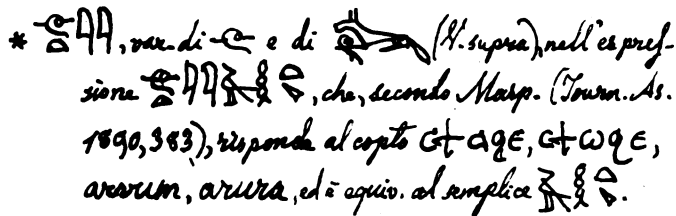 * , var. di e di (V. supra), nell'espres-
sione , che, secondo Masp. (Journ. As.
1890, 383), risponde al copto ⲥϯⲁϩⲉ, ⲥϯⲱϩⲉ,
arvum, arura, ed è equiv. al semplice .